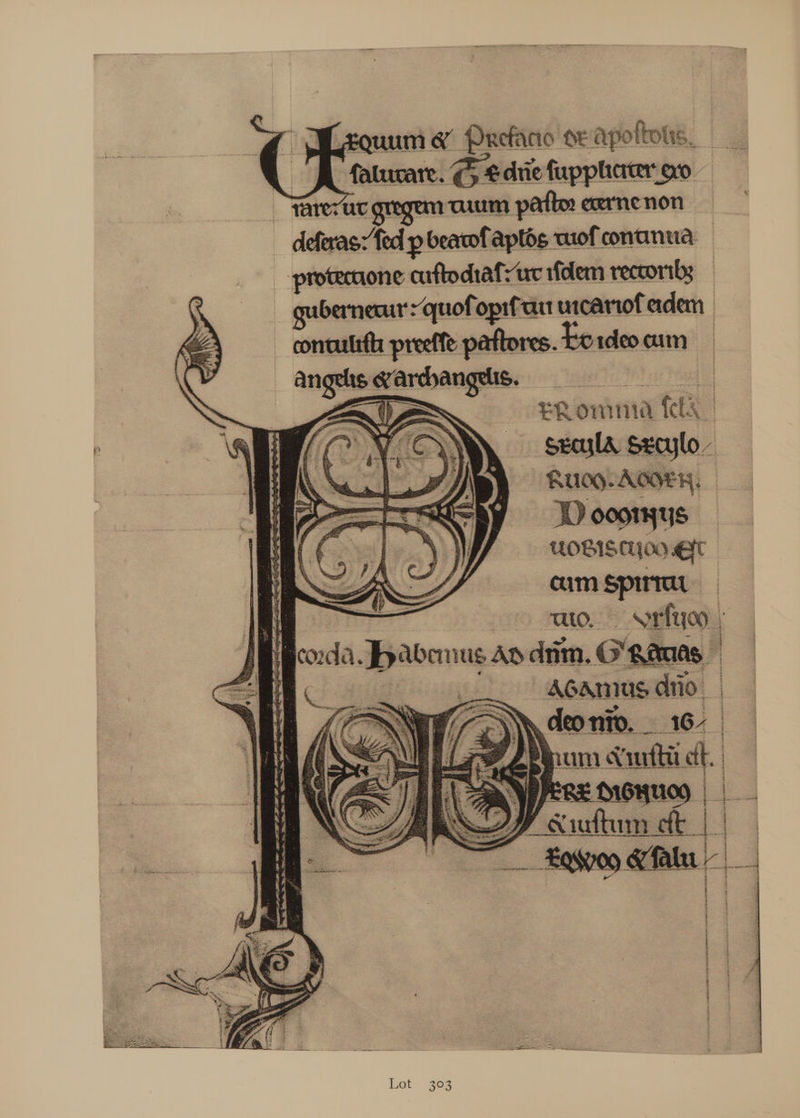 Equum & Prefatio de apostolis.
salutare. Te dn̄e suppliciter exo
rare: ut gregem tuum pastor eterne non
deseras: sed p beatos aplōs tuos continua
protectione custodias: ut isdem rectorib;
gubernetur: quos opis tui uicarios eidem
contulisti preesse pastores. Et ideo cum
angelis & archangelis.
PER omnia sc̄la
secula seculo-
RUM. AMEN.
Dominus
uobiscum et
cum spiritu
tuo. Sursum
corda. habemus AD dn̄m. GRatias
AGAmus dn̄o
deo nr̄o. DIG-
num & iustū est.
VERE DIGNUM
& iustum est
EQUUM & salu-
Lot 303